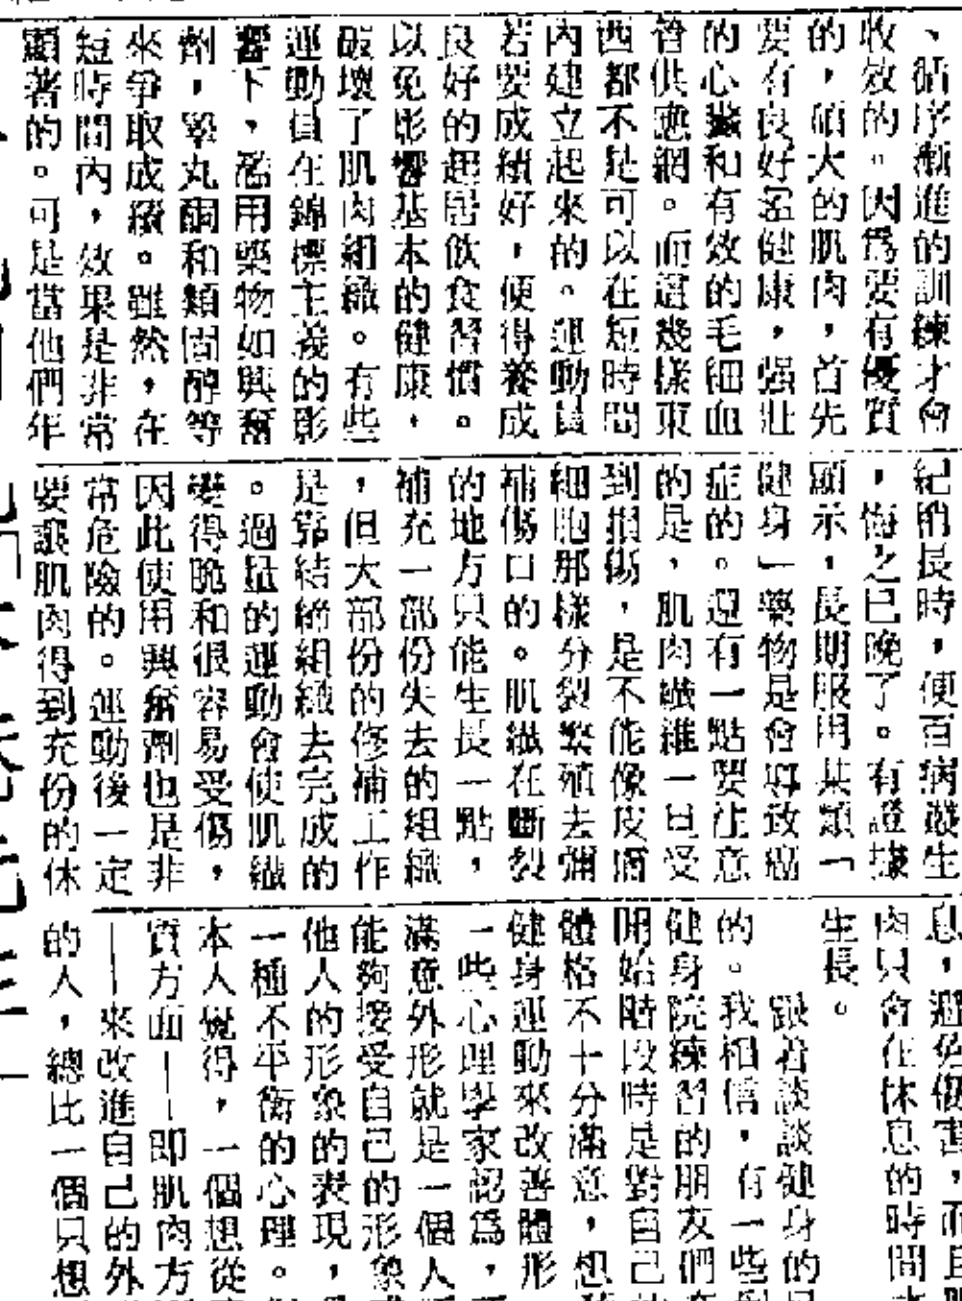 、循序漸進的訓練才會
收效的。因爲要有優質
的，碩大的肌肉，首先
要有良好的健康，强壯
的心臟和有效的毛細血
管供應網。而這幾樣東
西都不是可以在短時間
內建立起來的。運動員
若要成績好，便得養成
良好的起居飲食習慣。
以免影響基本的健康，
破壞了肌肉組織。有些
運動員在錦標主義的影
響下，濫用藥物如興奮
劑，睾丸酮和類固醇等
來爭取成績。雖然，在
短時間內，效果是非常
顯著的。可是當他們年
紀稍長時，便百病叢生
，悔之已晚了。有證據
顯示，長期服用某類「
健身」藥物是會導致癌
症的。還有一點要注意
的是，肌肉纖維一旦受
到損傷，是不能像皮膚
細胞那樣分裂繁殖去彌
補傷口的。肌纖在斷裂
的地方只能生長一點，
補充一部份失去的組織
，但大部份的修補工作
是靠結締組織去完成的
。過量的運動會使肌纖
變得脆和很容易受傷，
因此使用興奮劑也是非
常危險的。運動後一定
要讓肌肉得到充份的休
息，避免傷害，而且肌
肉只會在休息的時間
生長。
跟着談談健身的
的。我相信，有一些
健身院練習的朋友們
開始階段時是對自己
體格不十分滿意，想
健身運動來改善體形
一些心理學家認爲，
滿意外形就是一個人
能夠接受自己的形象
他人的形象的表現，
一種不平衡的心理。
本人覺得，一個想從
質方面——即肌肉方
——來改進自己的外
的人，總比一個只想